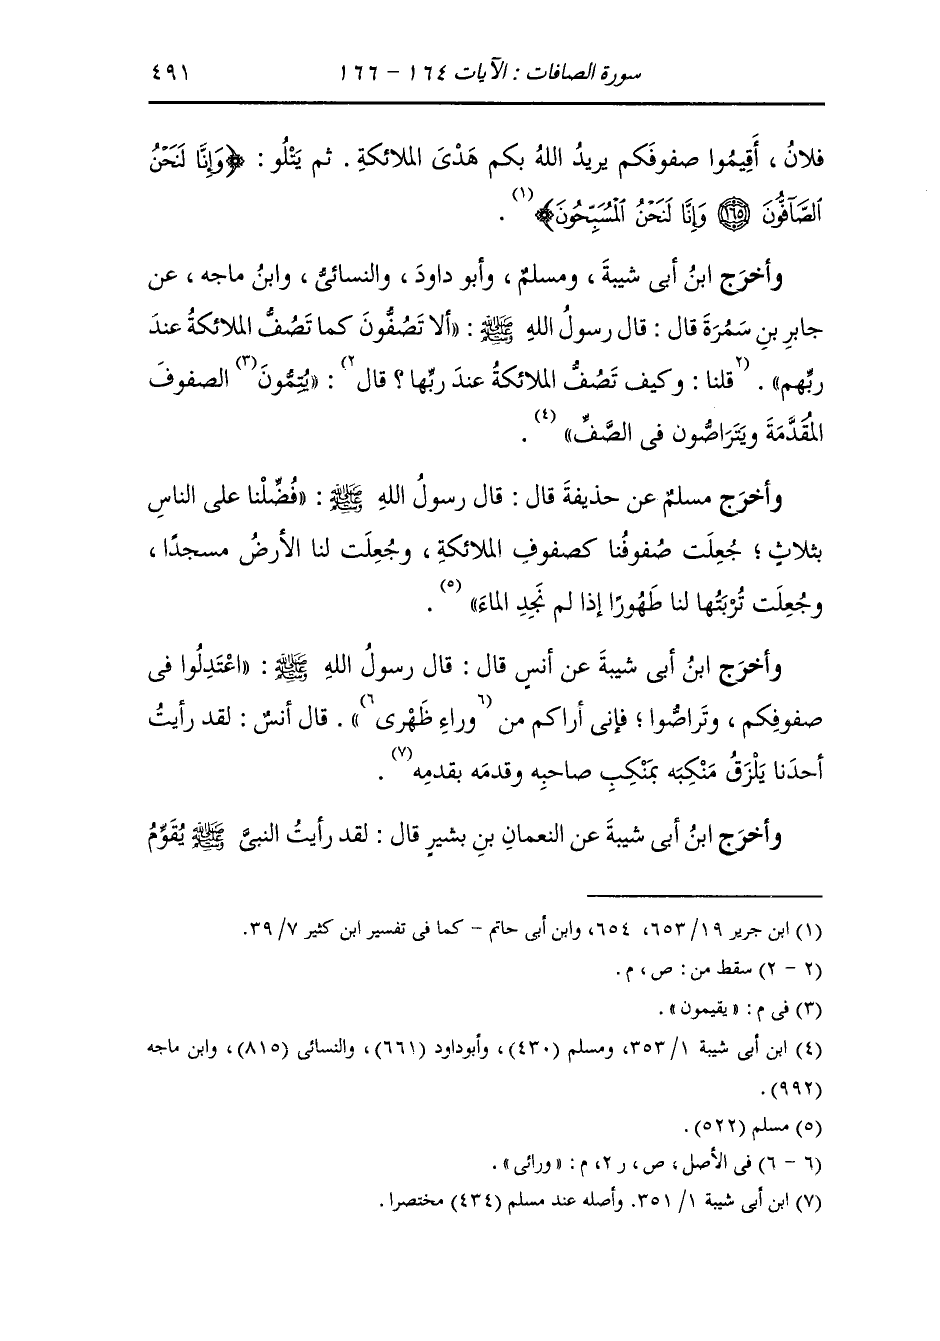 سورة الصافات : الآيات ١٦٤ - ١٦٦ ٤٩١
فلانُ ، أَقِيمُوا صفوفَكم يريدُ اللهُ بكم هَدْىَ الملائكةِ . ثم يَتْلُو : ﴿وَإِنَّا لَنَحْنُ
ٱلصَّآفُّونَ ١٦٥ وَإِنَّا لَنَحْنُ ٱلْمُسَبِّحُونَ﴾(١) .
وأخرَج ابنُ أبى شيبةَ ، ومسلمٌ ، وأبو داودَ ، والنسائىُّ ، وابنُ ماجه ، عن
جابرِ بنِ سَمُرَةَ قال : قال رسولُ اللهِ ﷺ : «ألا تَصُفُّونَ كما تَصُفُّ الملائكةُ عندَ
ربِّهم» . (٢قلنا : وكيف تَصُفُّ الملائكةُ عندَ ربِّها ؟ قال٢) : «يُتِمُّونَ(٣) الصفوفَ
المُقَدَّمَةَ ويَتَرَاصُّون فى الصَّفِّ»(٤) .
وأخرَج مسلمٌ عن حذيفةَ قال : قال رسولُ اللهِ ﷺ : «فُضِّلْنا على الناسِ
بثلاثٍ ؛ جُعِلَت صُفوفُنا كصفوفِ الملائكةِ ، وجُعِلَت لنا الأرضُ مسجدًا ،
وجُعِلَت تُرْبَتُها لنا طَهُورًا إذا لم نَجِدِ الماءَ»(٥) .
وأخرَج ابنُ أبى شيبةَ عن أنسٍ قال : قال رسولُ اللهِ ﷺ : «اعْتَدِلُوا فى
صفوفِكم ، وتَراصُّوا ؛ فإنى أراكم من (٦وراءِ ظَهْرى٦)» . قال أنسٌ : لقد رأيتُ
أحدَنا يَلْزَقُ مَنْكِبَه بمَنْكِبِ صاحبِه وقدمَه بقدمِه(٧) .
وأخرَج ابنُ أبى شيبةَ عن النعمانِ بنِ بشيرٍ قال : لقد رأيتُ النبىَّ ﷺ يُقَوِّمُ
(١) ابن جرير ١٩/ ٦٥٣، ٦٥٤، وابن أبى حاتم - كما فى تفسير ابن كثير ٧/ ٣٩.
(٢ - ٢) سقط من : ص ، م .
(٣) فى م : « يقيمون » .
(٤) ابن أبى شيبة ١/ ٣٥٣، ومسلم (٤٣٠) ، وأبوداود (٦٦١) ، والنسائى (٨١٥) ، وابن ماجه
(٩٩٢) .
(٥) مسلم (٥٢٢) .
(٦ - ٦) فى الأصل ، ص ، ر ٢، م : « ورائى » .
(٧) ابن أبى شيبة ١/ ٣٥١. وأصله عند مسلم (٤٣٤) مختصرا .